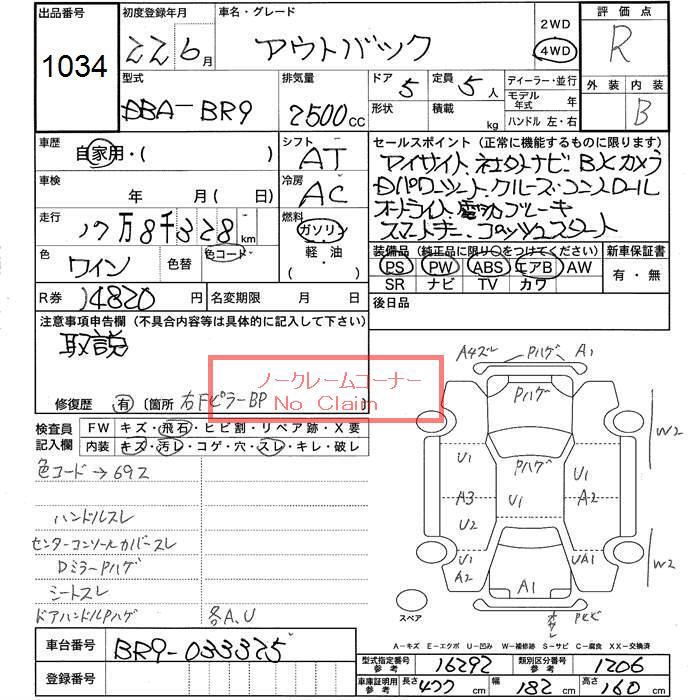 出品番号 初度登録年月 車名・グレード 評価点
1034 22 6月 アウトバック 2WD 4WD R
型式 排気量 ドア 5 定員 5人 ディーラー・並行 外装 内装
DBA-BR9 2500cc 形状 積載 kg モデル年式 年 B
ハンドル 左・右
車歴 シフト セールスポイント (正常に機能するものに限ります)
自家用・( ) AT アイサイト 社外ナビ Bカメラ
車検 冷房 Dパワーシート・クルーズ・コントロール
年 月( 日) AC オートライト 電動ブレーキ
走行 燃料 スマートキー プッシュスタート
17万8千328km ガソリン 装備品 (純正品に限り○をつけてください) 新車保証書
色 色替 色コード 軽・油 PS PW ABS エアB AW 有・無
ワイン ( ) SR ナビ TV カワ
R券 14820円 名変期限 月 日 後日品
注意事項申告欄 (不具合内容等は具体的に記入して下さい)
取説
ノークレームコーナー
No Claim
修復歴 有 〔箇所 右FピラーBP
検査員 記入欄 FW キズ・飛石・ヒビ割・リペア跡・X要
内装 キズ・汚レ・コゲ・穴・スレ・キレ・破レ
色コード→69Z
ハンドルスレ
センターコンソールカバースレ
DミラーPハゲ
シートスレ
ドアハンドルPハゲ 各A.U
A4ズレ Pハゲ A1
Pハゲ
W2
U1 Pハゲ U1
A3 U1 A2
U2
U1 UA1 W2
A2 A1
スペア
A-キズ E-エクボ U-凹み W-補修跡 S-サビ C-腐食 XX-交換済
車台番号 BR9-033375
登録番号
型式指定番号 参考 16292 類別区分番号 参考 1206
車庫証明用 参考 長さ 477cm 幅 182cm 高さ 160cm